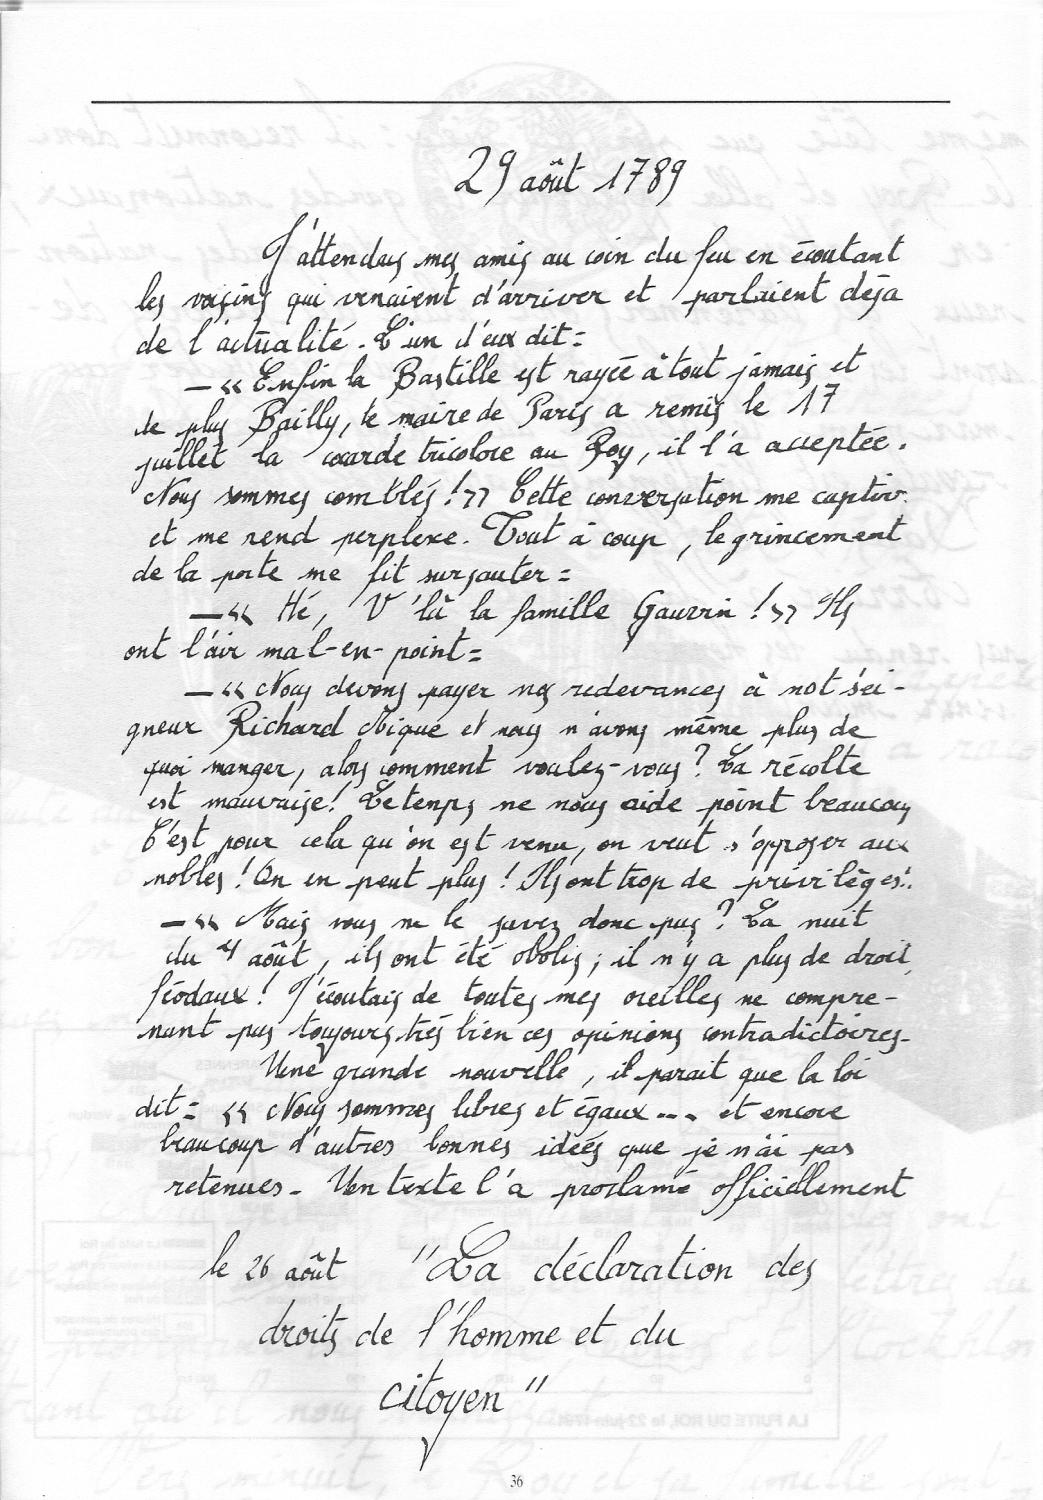 29 août 1789
J'attendais mes amis au coin du feu en écoutant
les voisins qui venaient d'arriver et parlaient déja
de l'actualité. L'un d'eux dit :
— « Enfin la Bastille est rayée à tout jamais et
de plus Bailly, le maire de Paris a remis le 17
juillet la cocarde tricolore au Roy, il l'a acceptée.
Nous sommes comblés ! » Cette conversation me captiv
et me rend perplexe. Tout à coup, le grincement
de la porte me fit sursauter :
— « Hé, V'là la famille Gauvrin ! » Ils
ont l'air mal-en-point :
— « Nous devons payer nos redevances à not'sei-
gneur Richard Mique et nous n'avons même plus de
quoi manger, alors comment voulez-vous ? La récolte
est mauvaise ! Le temps ne nous aide point beaucoup
C'est pour cela qu'on est venu, on veut s'opposer aux
nobles ! On en peut plus ! Ils ont trop de privilèges !.
— « Mais vous ne le savez donc pas ? La nuit
du 4 août, ils ont été abolis ; il n'y a plus de droit
féodaux ! J'écoutais de toutes mes oreilles ne compre-
nant pas toujours très bien ces opinions contradictoires.
Une grande nouvelle, il parait que la loi
dit : « Nous sommes libres et égaux... et encore
beaucoup d'autres bonnes idées que je n'ai pas
retenues. Un texte l'a proclamé officiellement
le 26 août "La déclaration des
droits de l'homme et du
citoyen"
36